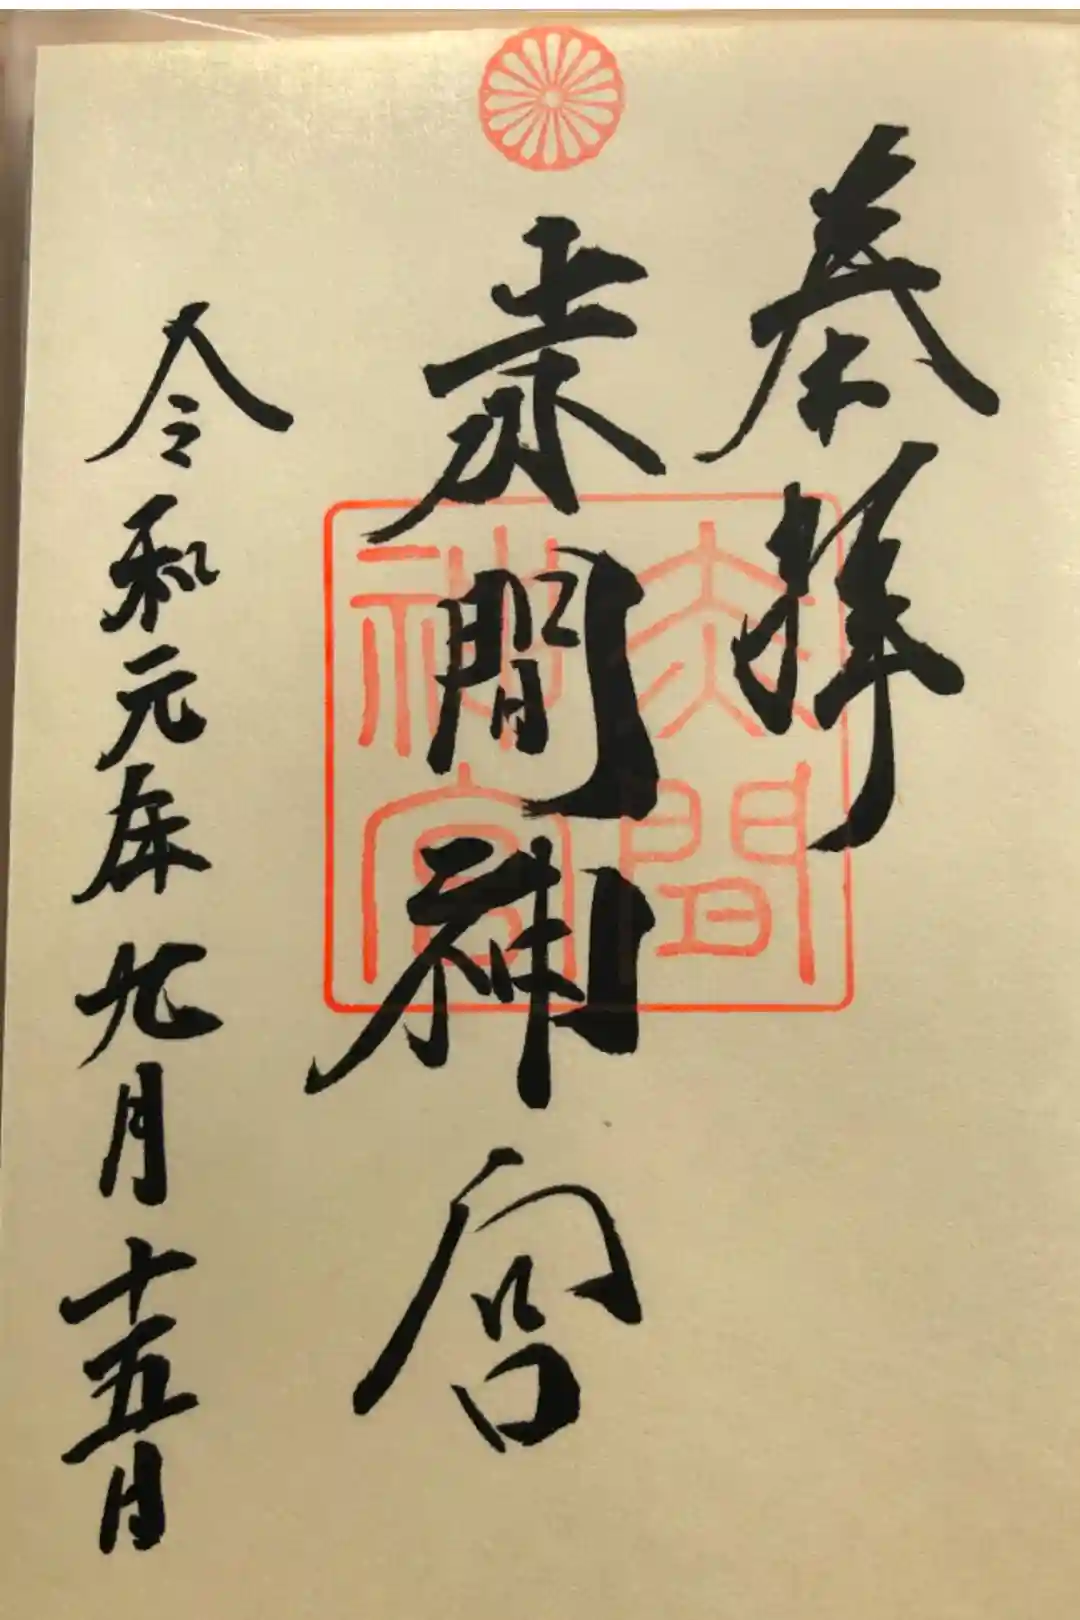 奉拝
赤間神宮
令和元年九月十五日
赤間
神宮